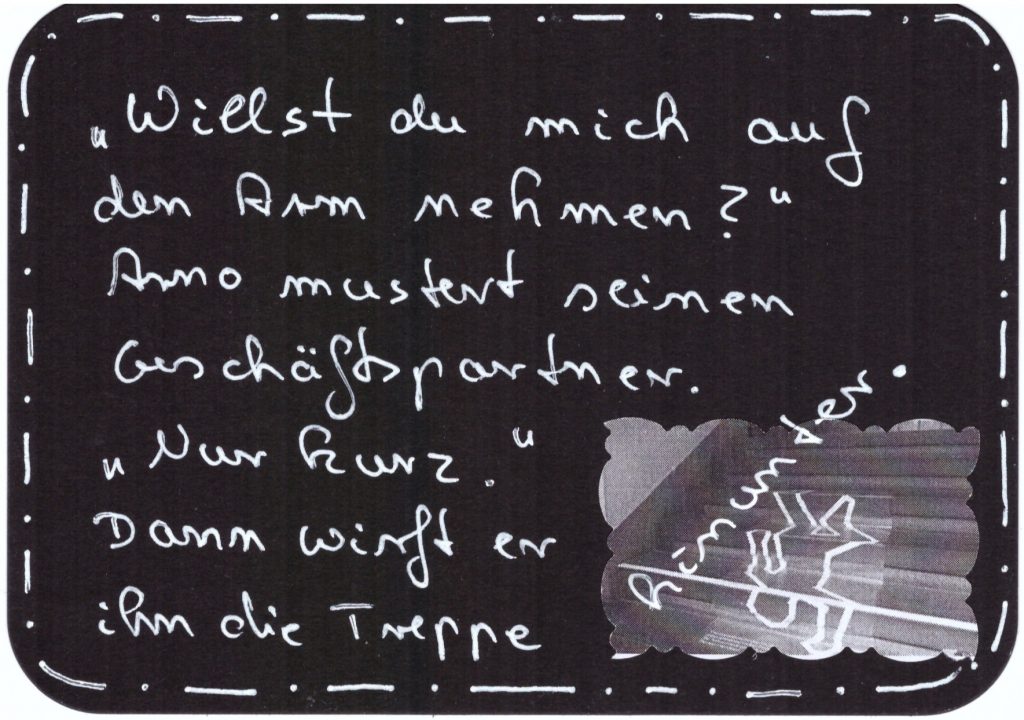 „Willst du mich auf
den Arm nehmen?“
Arno mustert seinen
Geschäftspartner.
„Nur kurz.“
Dann wirft er
ihn die Treppe
hinunter.